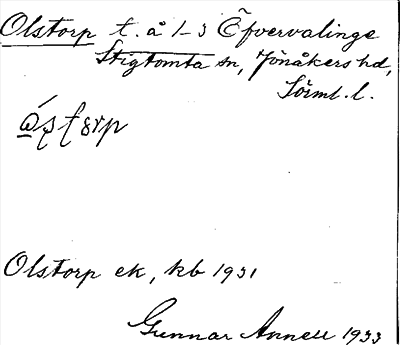 Olstorp t. å 1-3 Öfvervalinge
Stigtomta sn, Jönåkers hd,
Sörml. l.
Olstorp ek, kb 1931
Gunnar Annell 1933